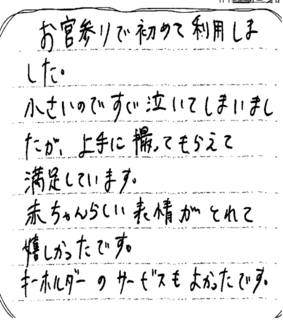 お宮参りで初めて利用しま
した。
小さいのですぐ泣いてしまいまし
たが、上手に撮ってもらえて
満足しています。
赤ちゃんらしい表情がとれて
嬉しかったです。
キーホルダーのサービスもよかったです。